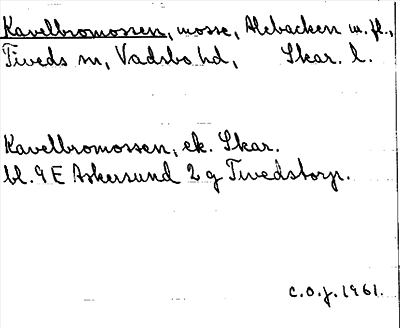 Kavelbromossen, mosse, Alebacken m. fl.,
Tiveds sn, Vadsbo hd, Skar. l.
Kavelbromossen, ek. Skar.
bl. 9 E Askersund 2 g Tivedstorp.
C.O.J. 1961.